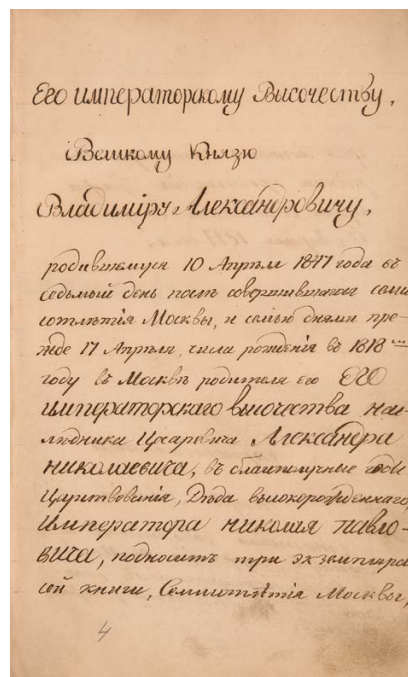 Его императорскому Высочеству,
Великому Князю
Владиміру Александровичу,
родившемуся 10 Апрѣля 1847 года въ
седьмый день послѣ совершившагося семи
сотлѣтія Москвы, и семью днями пре-
жде 17 Апрѣля, числа рожденія въ 1818-мъ
году въ Москвѣ родителя его ЕГО
императорскаго высочества нас-
лѣдника Цесаревича Александра
николаевича, въ благополучные годы
Царствованія, Дѣда высокорожденнаго,
императора николая павло-
вича, подноситъ три экземпляра
сей книги, Семисотлѣтія Москвы,
4